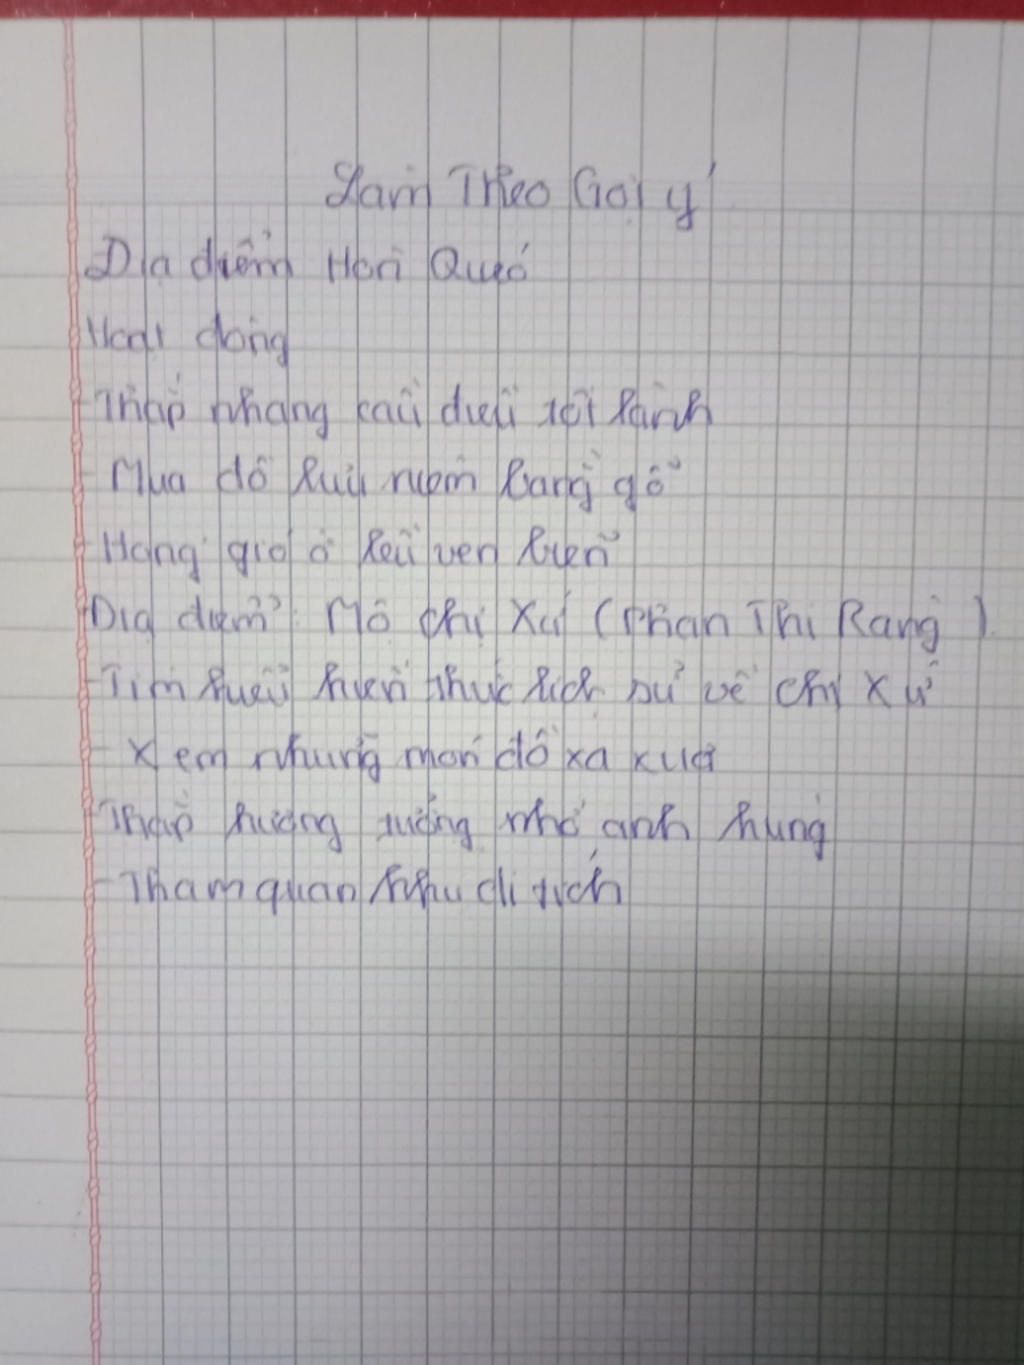 Làm Theo Gợi ý
Địa điểm Hòn Quéo
Hoạt động
- Thắp nhang cầu điều tốt lành
- Mua đồ lưu niệm bằng gỗ
- Hóng gió ở lều ven biển
Địa điểm: Mộ chị Xứ (Phan Thị Ràng)
- Tìm hiểu kiến thức lịch sử về chị Xứ
- Xem những món đồ xa xưa
- Thắp hương tưởng nhớ anh hùng
- Tham quan khu di tích